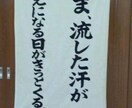 ま、流した汗が
えになる日がきっとくる